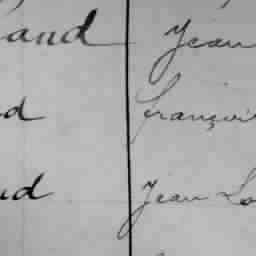 and Jean
d Françoi
ud Jean Lo